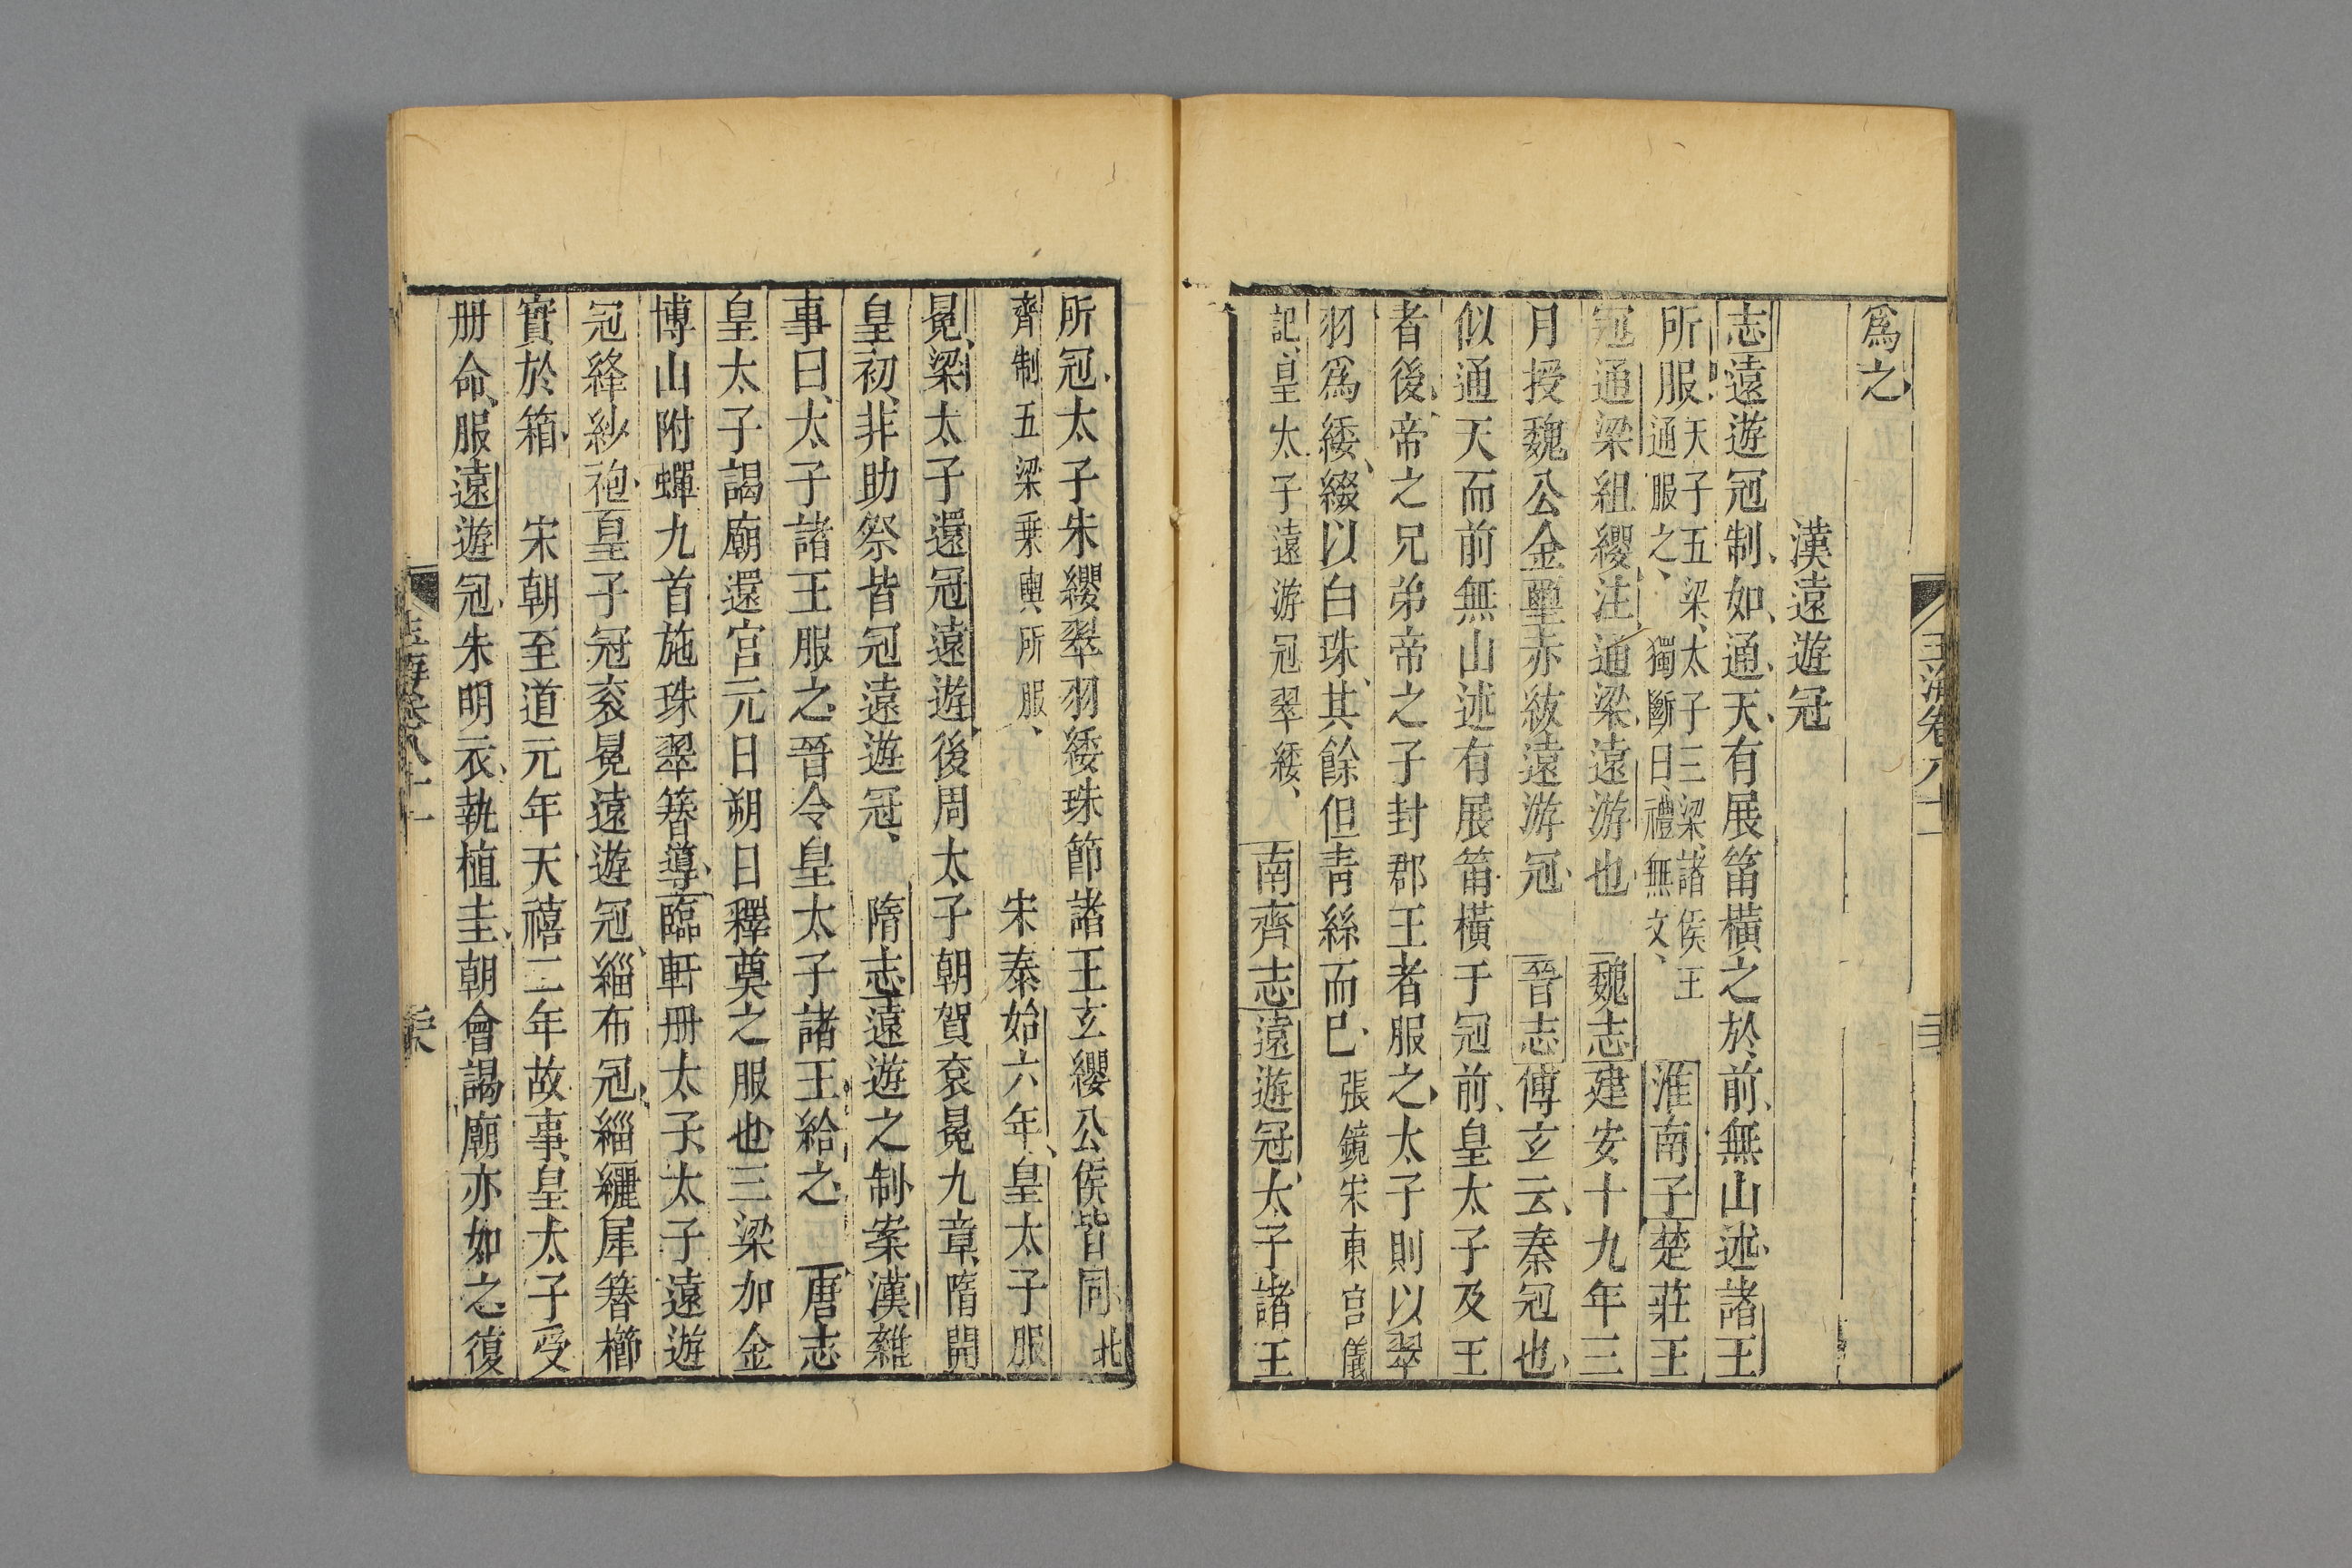 玉海卷八十一
爲之
漢遠遊冠
志遠遊冠制如通天有展筩橫之於前無山述諸王
所服天子五梁太子三梁諸侯王通服之獨斷曰禮無文淮南子楚莊王
冠通梁組纓注通梁遠游也魏志建安十九年三
月授魏公金璽赤紱遠游冠晉志傅玄云秦冠也
似通天而前無山述有展筩橫于冠前皇太子及王
者後帝之兄弟帝之子封郡王者服之太子則以翠
羽爲緌綴以白珠其餘但靑絲而已張鏡宋東宮儀
記皇太子遠游冠翠緌南齊志遠遊冠太子諸王
所冠太子朱纓翠羽緌珠節諸王玄纓公侯皆同北
齊制五梁乗輿所服宋泰始六年皇太子服
冕梁太子還冠遠遊後周太子朝賀袞冕九章隋開
皇初非助祭皆冠遠遊冠隋志遠遊之制案漢雜
事曰太子諸王服之晉令皇太子諸王給之唐志
皇太子謁廟還宮元日朔日釋奠之服也三梁加金
博山附蟬九首施珠翠簪導臨軒冊太子太子遠遊
冠絳紗袍皇子冠袞冕遠遊冠緇布冠緇纚犀簪櫛
實於箱宋朝至道元年天禧二年故事皇太子受
册命服遠遊冠朱明衣執植圭朝會謁廟亦如之復
玉海卷八十一